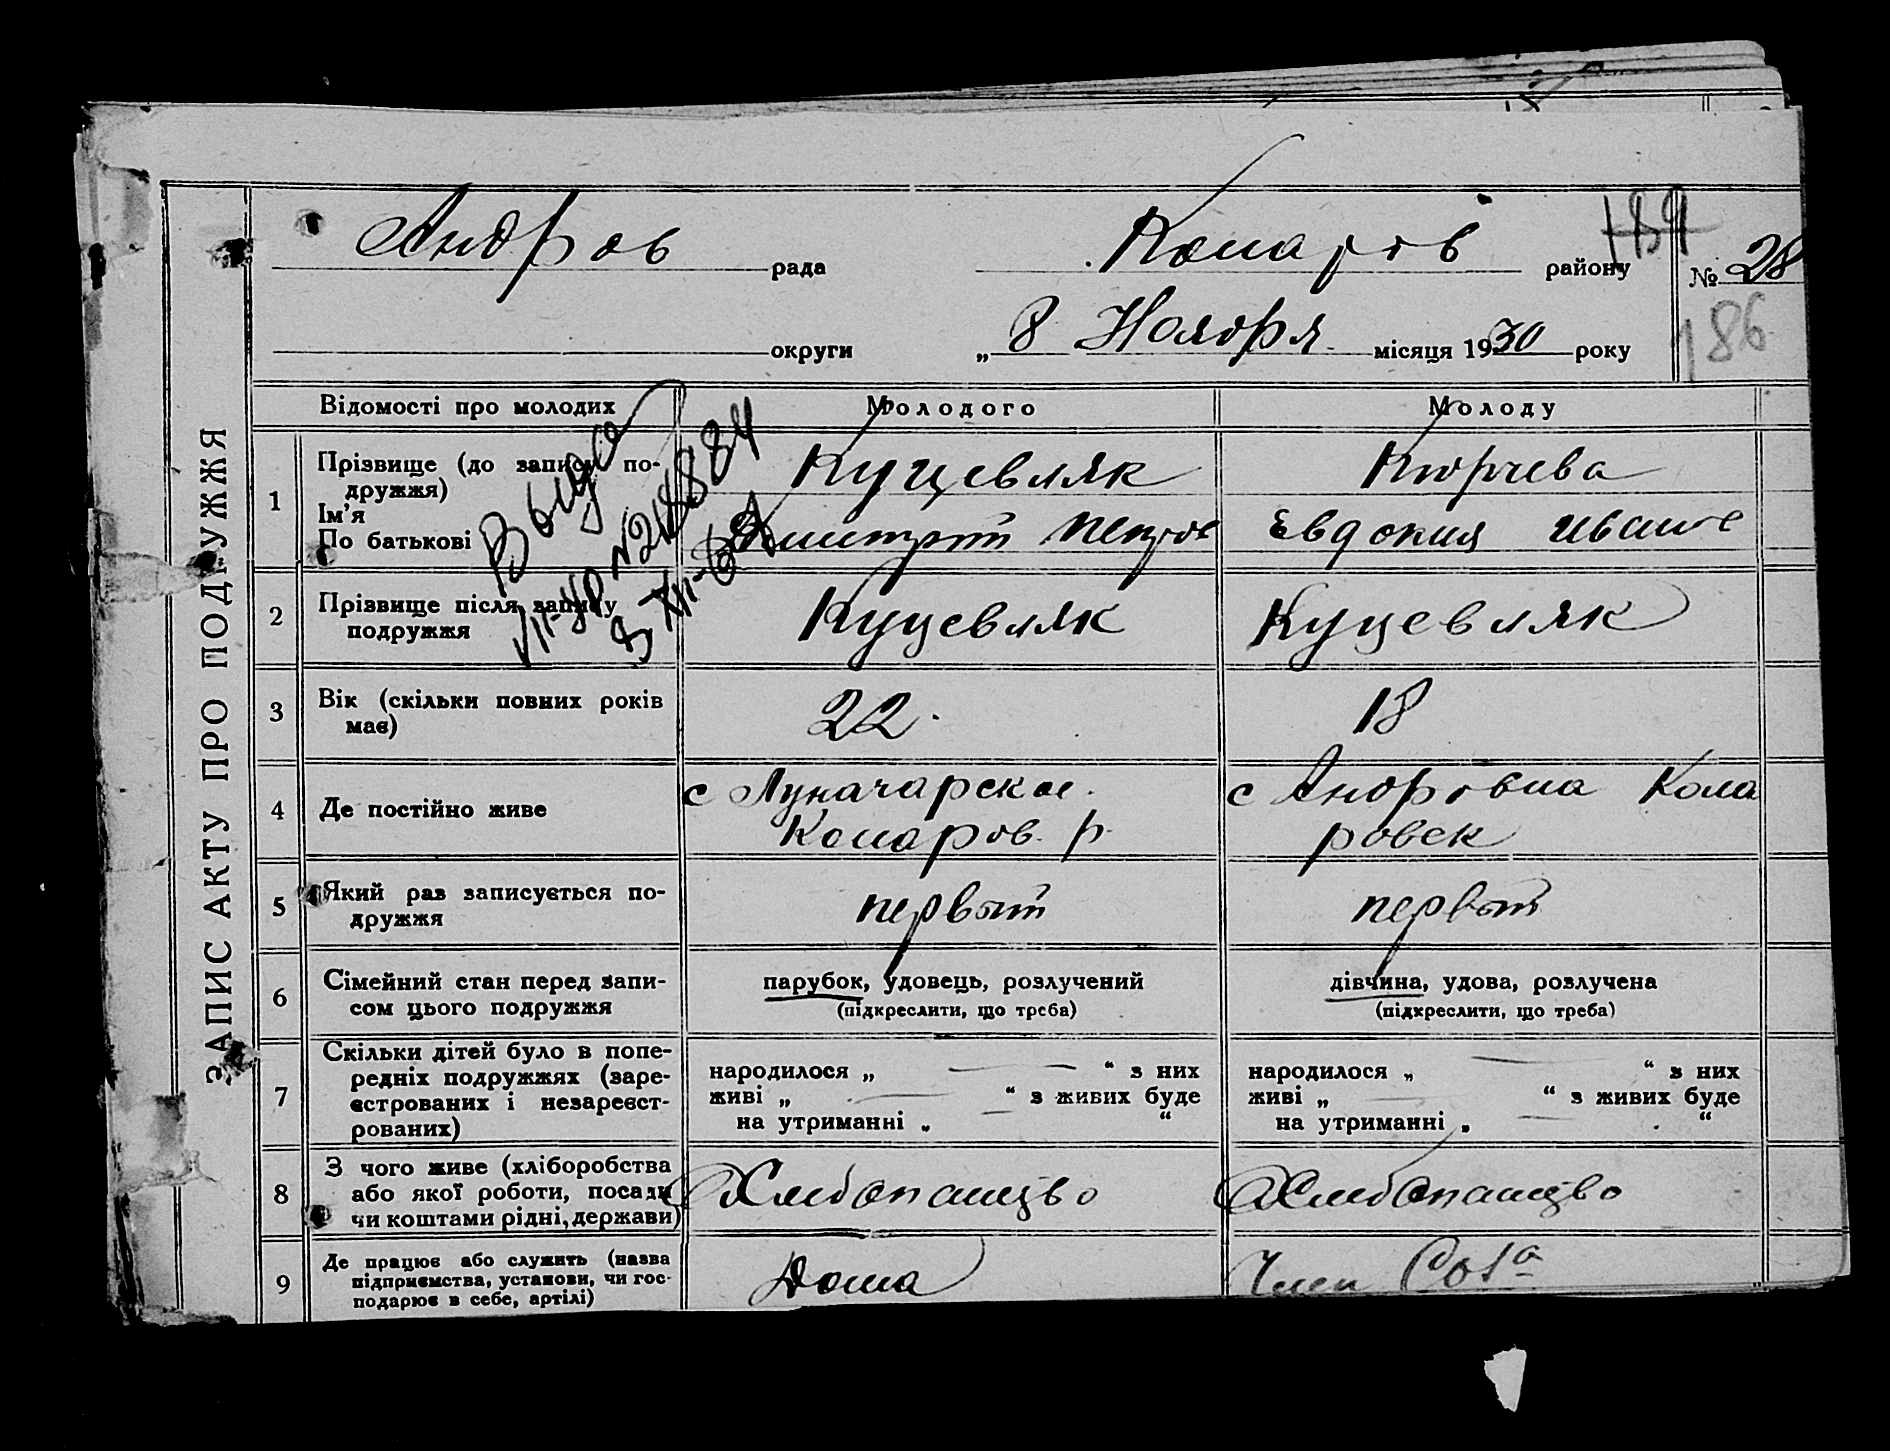 ЗАПИС АКТУ ПРО ПОДРУЖЖЯ
Андров рада Коларов району № 28
189
округи „ 8 Ноября місяця 1930 року
186
Відомості про молодих Молодого Молоду
1 Прізвище (до запису подружжя) Куцевляк Кюрчева
Ім'я
По батькові Дмитрий Петров Евдокия Иванов
Выдано
VII-ЯР №218884
3 XII-64
2 Прізвище після запису подружжя Куцевляк Куцевляк
3 Вік (скільки повних років має) 22. 18
4 Де постійно живе с Луначарское. с Андровка Кола
Коларов. р. ровск
5 Який раз записується по- первый первый
дружжя
6 Сімейний стан перед запи- парубок, удовець, розлучений дівчина, удова, розлучена
сом цього подружжя (підкреслити, що треба) (підкреслити, що треба)
7 Скільки дітей було в попе-
редніх подружжях (заре- народилося „ — “ з них народилося „ — “ з них
єстрованих і незареєст- живі „ — “ з живих буде живі „ — “ з живих буде
рованих) на утриманні „ — “ на утриманні „ — “
8 З чого живе (хліборобства
або якої роботи, посади Хлебопашество Хлебопашество
чи коштами рідні, держави)
9 Де працює або служить (назва
підприємства, установи, чи гос- Дома Член Соза
подарює в себе, артілі)